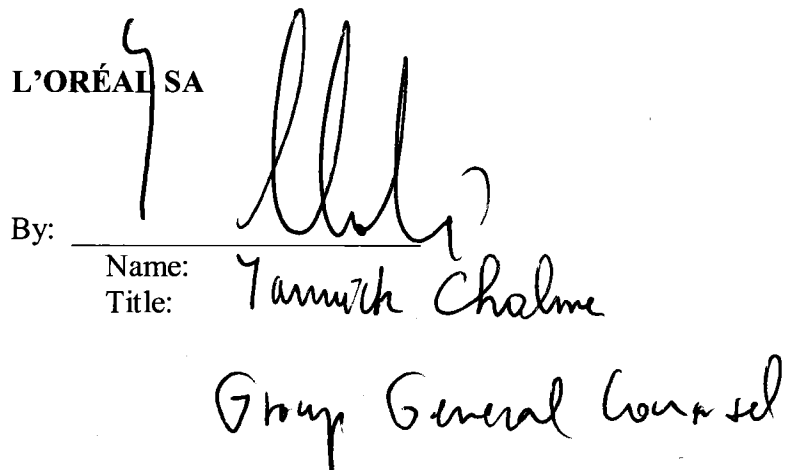 L'ORÉAL SA
By:
Name: Yannick Chalme
Title:
Group General Counsel